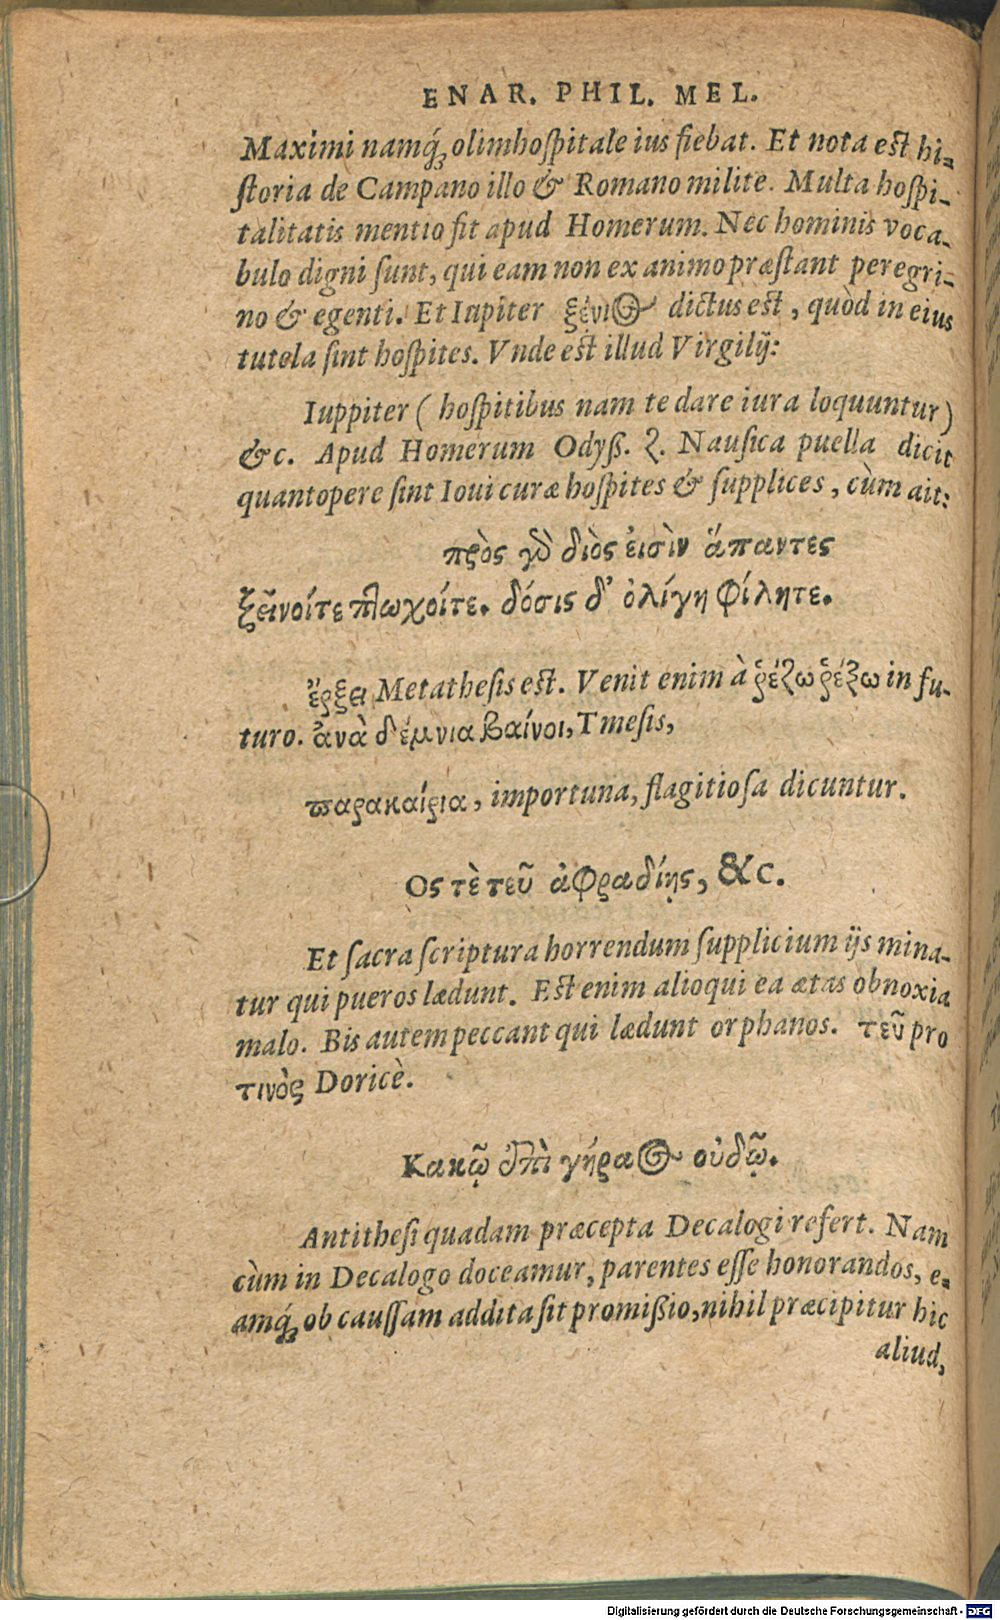 ENAR. PHIL. MEL.
Maximi namq́ꝫ olim hoſpitale ius fiebat. Et nota est hi-
ſtoria de Campano illo & Romano milite. Multa hoſpi-
talitatis mentio fit apud Homerum. Nec hominis voca-
bulo digni ſunt, qui eam non ex animo præſtant peregri-
no & egenti. Et Iupiter ξένιος dictus est, quòd in eius
tutela ſint hoſpites. Vnde est illud Virgilij:
Iuppiter ( hoſpitibus nam te dare iura loquuntur )
&c. Apud Homerum Odyß. ζ. Nauſica puella dicit
quantopere ſint Ioui curæ hoſpites & ſupplices, cùm ait:
πρὸς γὸ διὸς ἐισὶν ἅπαντες
ξεῖνοίτε πτωχοίτε. δόσις δ' ὀλίγη φίλητε.
ἔρξει Metatheſis est. Venit enim à ῥέζω ῥέξω in fu-
turo. ἀνὰ δέμνια βαίνοι, Tmeſis,
παρακαίρια, importuna, flagitioſa dicuntur.
Ος τὲ τεῦ ἀφραδίῃς, &c.
Et ſacra ſcriptura horrendum ſupplicium ijs mina-
tur qui pueros lædunt. Est enim alioqui ea ætas obnoxia
malo. Bis autem peccant qui lædunt orphanos. τεῦ pro
τινὸς Doricè.
Κακῷ ἐπὶ γήραος οὐδῷ.
Antitheſi quadam præcepta Decalogi refert. Nam
cùm in Decalogo doceamur, parentes eſſe honorandos, e-
amq́ꝫ ob cauſſam addita ſit promißio, nihil præcipitur hic
aliud,
Digitalisierung gefördert durch die Deutsche Forschungsgemeinschaft - DFG